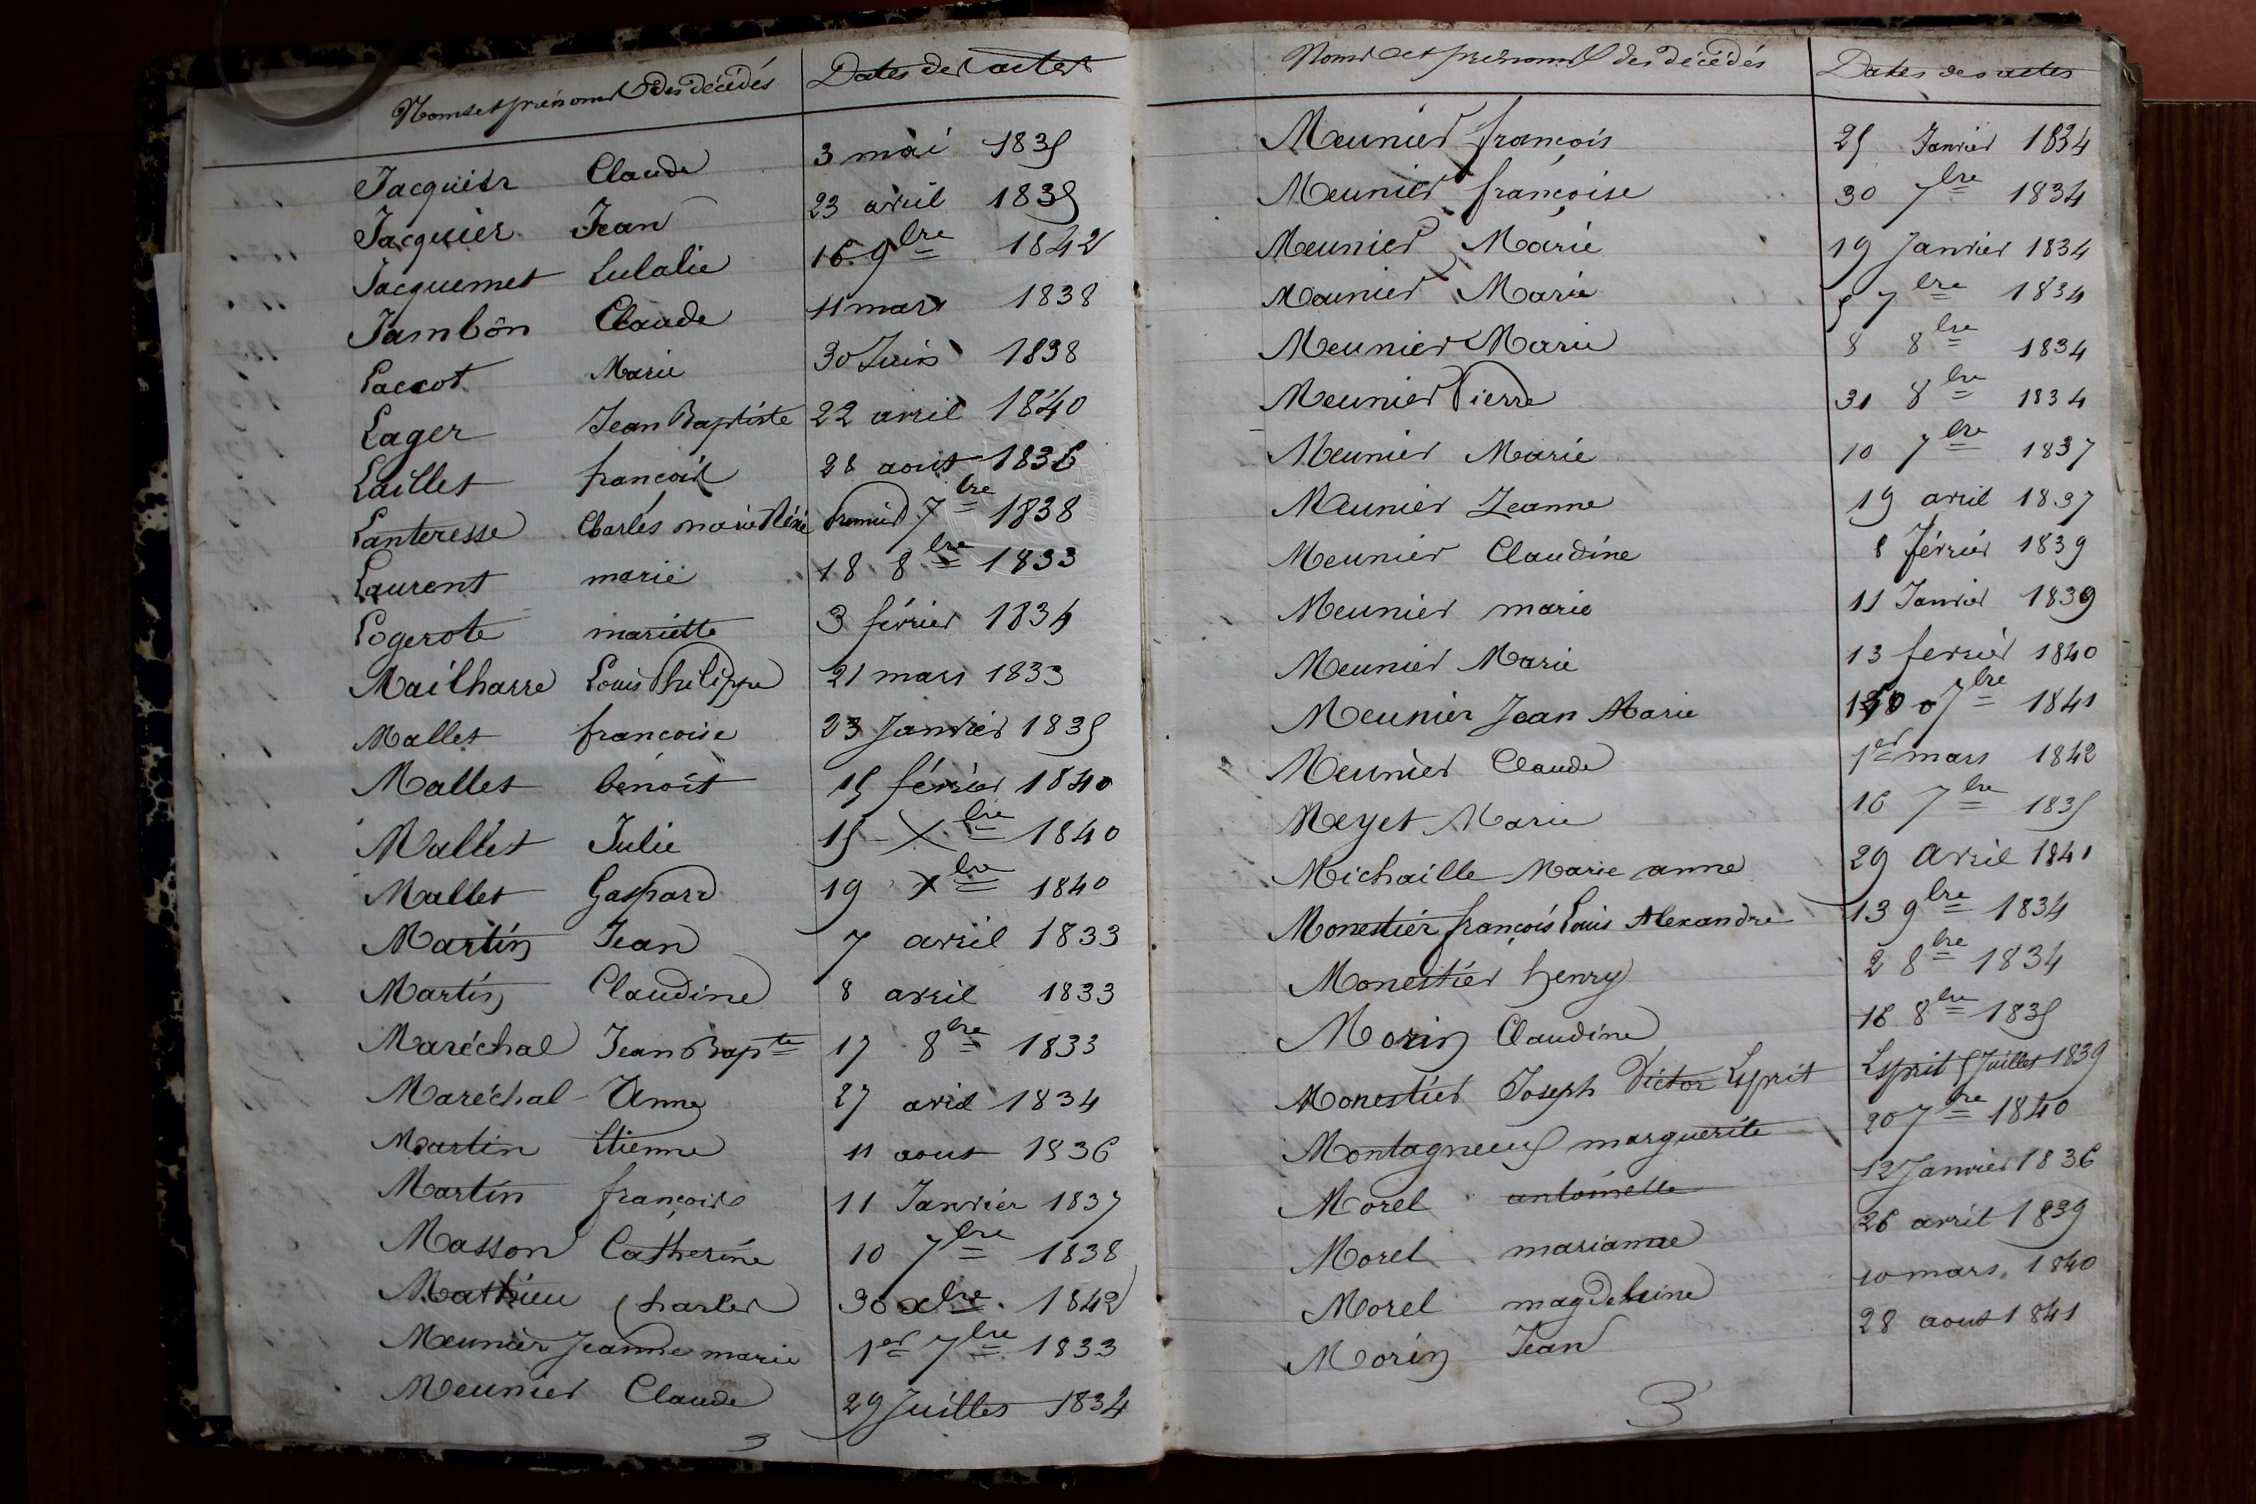 Noms et prénoms des décédés Dates des actes
Jacquier Claude 3 mai 1835
Jacquier Jean 23 avril 1835
Jacquemet Eulalie 16 9bre 1842
Jambon Claude 11 mars 1838
Laccot Marie 30 Juin 1838
Lager Jean Baptiste 22 avril 1840
Laillet françois 28 aout 1836
Lanteresse Charles marie premier 7bre 1838
Laurent marie 18 8bre 1833
Logerote mariette 3 février 1834
Mailharre Louis Philippe 21 mars 1833
Mallet francoise 23 Janvier 1835
Mallet benoit 15 février 1840
Mallet Julie 15 Xbre 1840
Mallet Gaspard 19 Xbre 1840
Martin Jean 7 avril 1833
Martin Claudine 8 avril 1833
Maréchal Jean Bapte 17 8bre 1833
Maréchal Anne 27 avril 1834
Martin Etienne 11 aout 1836
Martin françois 11 Janvier 1837
Masson Catherine 10 7bre 1838
Mathieu Charles 30 xbre 1842
Meunier Jeanne marie 1er 7bre 1833
Meunier Claude 29 Juillet 1834
3
Noms et prénoms des décédés Dates des actes
Meunier françois 25 Janvier 1834
Meunier françoise 30 7bre 1834
Meunier Marie 19 Janvier 1834
Meunier Marie 5 7bre 1834
Meunier Marie 8 8bre 1834
Meunier Pierre 31 8bre 1834
Meunier Marie 10 7bre 1837
Meunier Jeanne 19 avril 1837
Meunier Claudine 8 février 1839
Meunier marie 11 Janvier 1839
Meunier Marie 13 fevrier 1840
Meunier Jean Marie 7bre 1841
Meunier Claude 1er mars 1842
Meyet Marie 16 7bre 1835
Michaille Marie anne 29 Avril 1841
Monestier françois Louis Alexandre 13 9bre 1834
Monestier henry 2 8bre 1834
Morin Claudine 16 8bre 1835
Monestier Joseph Victor Esprit Esprit 5 Juillet 1839
Montagneux marguerite 20 7bre 1840
Morel antoinette 12 Janvier 1836
Morel marianne 26 avril 1839
Morel magdeleine 10 mars 1840
Morin Jean 28 aout 1841
3